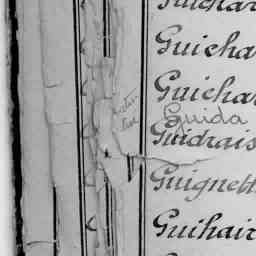 Guichar
Guicha
Guichar
Guida
Guidrais
Guignett
Guihair